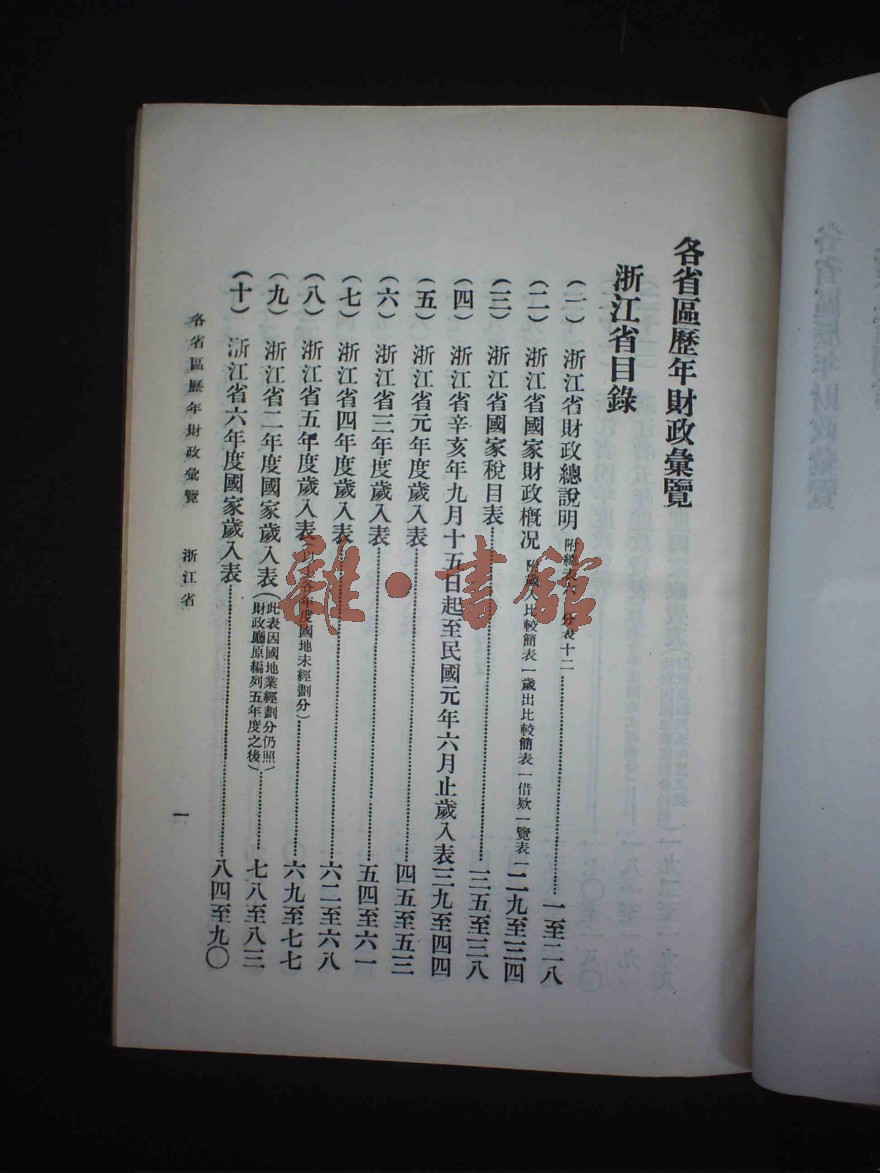 各省區歷年財政彙覽
浙江省目錄
(一) 浙江省財政總說明 附總表六 分表十二 一至二八
(二) 浙江省國家財政概况 附歲入比較簡表一歲出比較簡表一借欵一覽表一 二九至三四
(三) 浙江省國家稅目表 三五至三八
(四) 浙江省辛亥年九月十五日起至民國元年六月止歲入表 三九至四四
(五) 浙江省元年度歲入表 四五至五三
(六) 浙江省三年度歲入表 五四至六一
(七) 浙江省四年度歲入表 六二至六八
(八) 浙江省五年度歲入表 各年度國地未經劃分) 六九至七七
(九) 浙江省二年度國家歲入表 (此表因國地業經劃分仍照財政廳原編列五年度之後) 七八至八三
(十) 浙江省六年度國家歲入表 八四至九〇
各省區歷年財政彙覽 浙江省 一
雜·書館